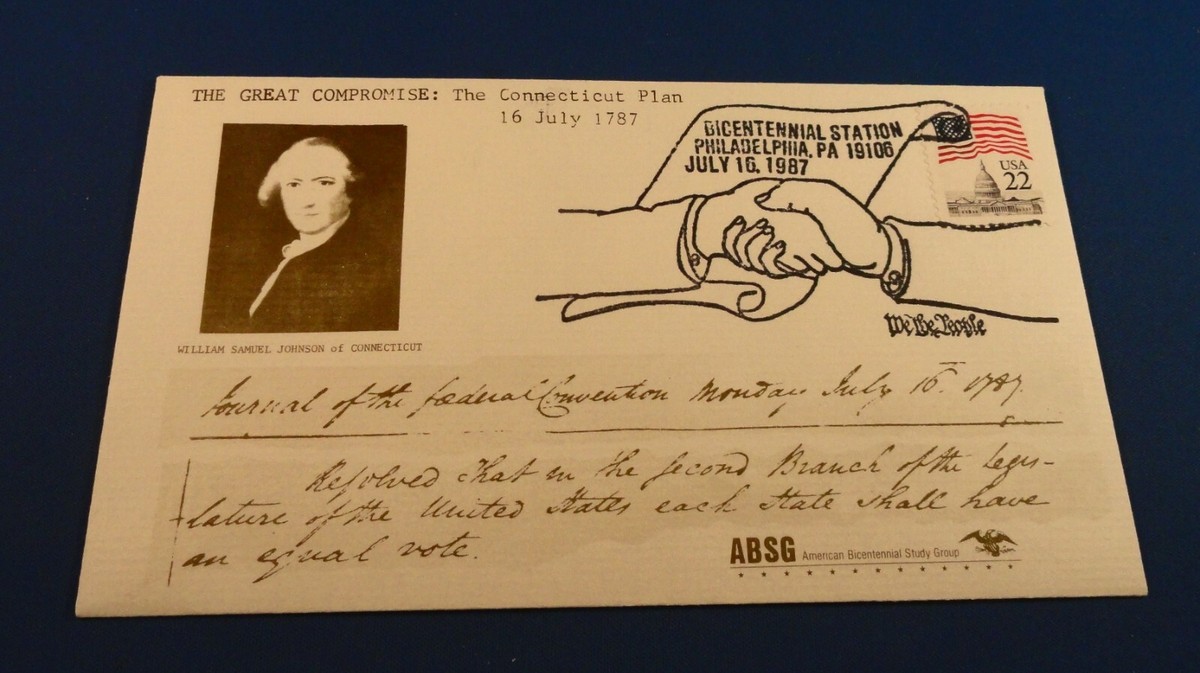 THE GREAT COMPROMISE: The Connecticut Plan
16 July 1787
BICENTENNIAL STATION
PHILADELPHIA, PA 19106
JULY 16, 1987
USA
22
We the People
WILLIAM SAMUEL JOHNSON of CONNECTICUT
Journal of the fœderal Convention Monday July 16. 1787.
Resolved That in the second Branch of the Legis-
lature of the United States each State shall have
an equal vote.
ABSG American Bicentennial Study Group